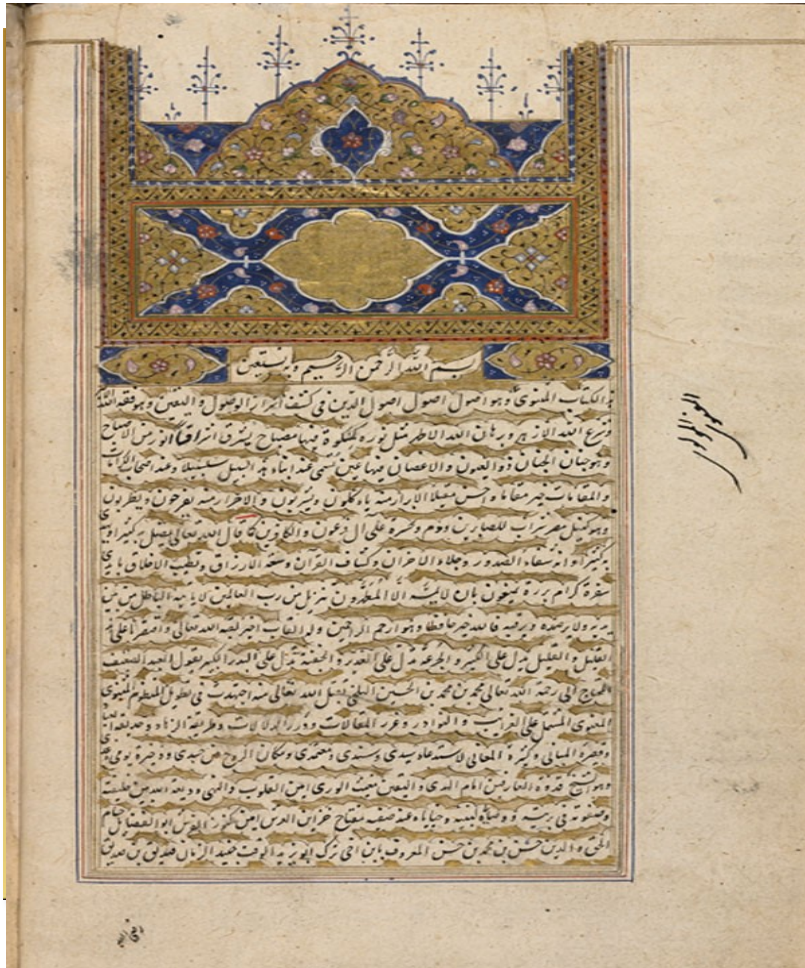 بسم الله الرحمن الرحیم وبه نستعین
هذا الکتاب المثنوی وهو اصول اصول اصول الدین فی کشف اسرار الوصول والیقین وهو فقه الله
وشرع الله الازهر وبرهان الله الاظهر مثل نوره کمشکوة فیها مصباح یشرق اشراقا انور من الاصباح
وهو جنان الجنان ذو العیون والاغصان فیها عین تسمی عند ابناء هذا السبیل سلسبیلا وعند اصحاب
المقامات خیر مقاما واحسن مقیلا الابرار منه یاکلون ویشربون والاحرار منه یفرحون ویطربون
وهو کنیل مصر شراب للصابرین ودم وحسرة علی ال فرعون والکافرین کما قال الله تعالی یضل به کثیرا
به کثیرا وانه شفاء الصدور وجلاء الاحزان وکشاف القران وسعة الارزاق وتطیب الاخلاق بایدی
سفرة کرام بررة یمنعون بان لا یمسه الا المطهرون تنزیل من رب العالمین لا یاتیه الباطل من بین
یدیه ولا یرصده ویرقبه فالله خیر حافظا وهو ارحم الراحمین وله القاب اخر لقبه الله تعالی واقتصرنا علی هذا
القلیل والقلیل یدل علی الکثیر والجرعة تدل علی الغدیر والحفنة تدل علی البیدر الکبیر یقول العبد الضعیف
المحتاج الی رحمة الله تعالی محمد بن محمد بن الحسین البلخی تقبل الله تعالی منه اجتهدت فی تطویل المنظوم المثنوی
المعنوی المشتمل علی الغرایب والنوادر وغرر المقالات ودرر الدلالات وطریقة الزهاد وحدیقة العباد
وقصیرة المبانی وکثیرة المعانی لاستدعاء سیدی وسندی ومعتمدی ومکان الروح من جسدی وذخیرة یومی
وهو الشیخ قدوة العارفین امام الهدی والیقین مغیث الوری امین القلوب والنهی ودیعة الله بین خلیقته
وصفوته فی بریته ووصایاه لنبیه وخبایاه عند صفیه مفتاح خزاین العرش امین کنوز الفرش ابو الفضایل حسام
الحق والدین حسن بن محمد بن حسن المعروف بابن اخی ترک ابو یزید الوقت جنید الزمان صدیق بن صدیق